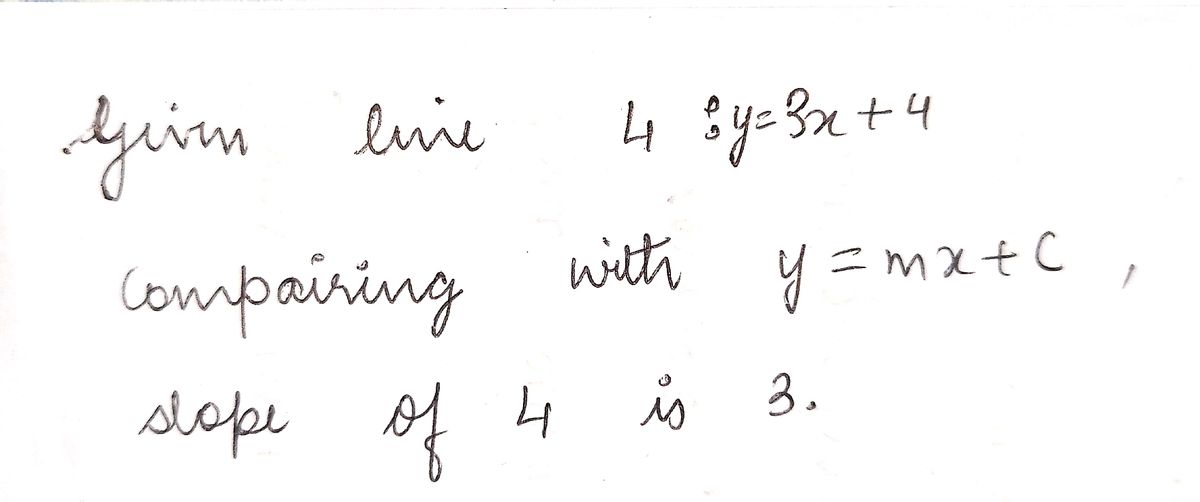 Given line 4 : y=3x+4
Compairing with y=mx+c ,
slope of 4 is 3.